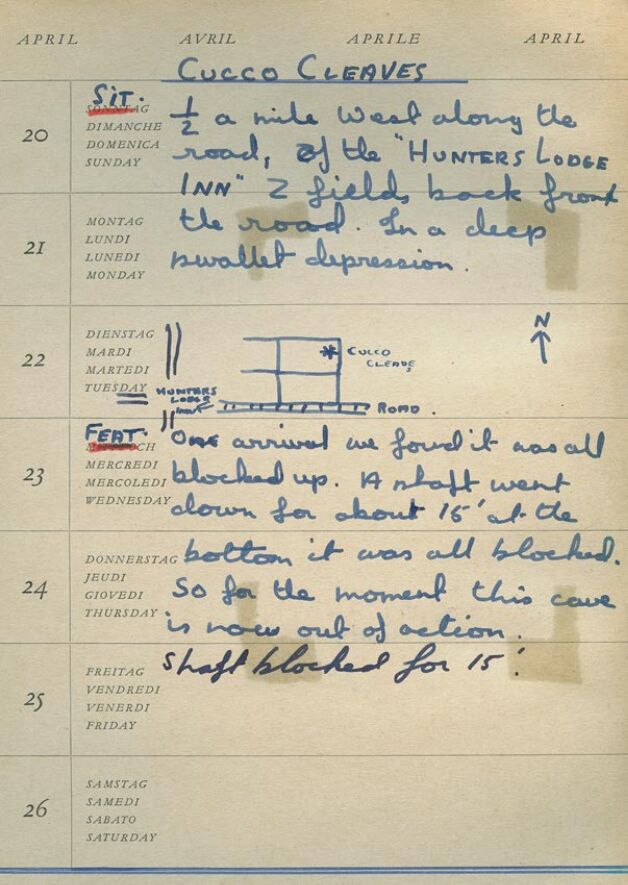 APRIL AVRIL APRILE APRIL
CUCCO CLEAVES
SIT.
20
SONNTAG
DIMANCHE
DOMENICA
SUNDAY
½ a mile West along the
road, of the "HUNTERS LODGE
INN" 2 fields back from
the road. In a deep
swallet depression.
21
MONTAG
LUNDI
LUNEDI
MONDAY
22
DIENSTAG
MARDI
MARTEDI
TUESDAY
N
CUCCO
CLEAVES
HUNTERS
LODGE
INN
ROAD.
FEAT.
23
MERCREDI
MERCOLEDI
WEDNESDAY
One arrival we found it was all
blocked up. A shaft went
down for about 15' at the
bottom it was all blocked.
So for the moment this cave
is now out of action.
Shaft blocked for 15'.
24
DONNERSTAG
JEUDI
GIOVEDI
THURSDAY
25
FREITAG
VENDREDI
VENERDI
FRIDAY
26
SAMSTAG
SAMEDI
SABATO
SATURDAY